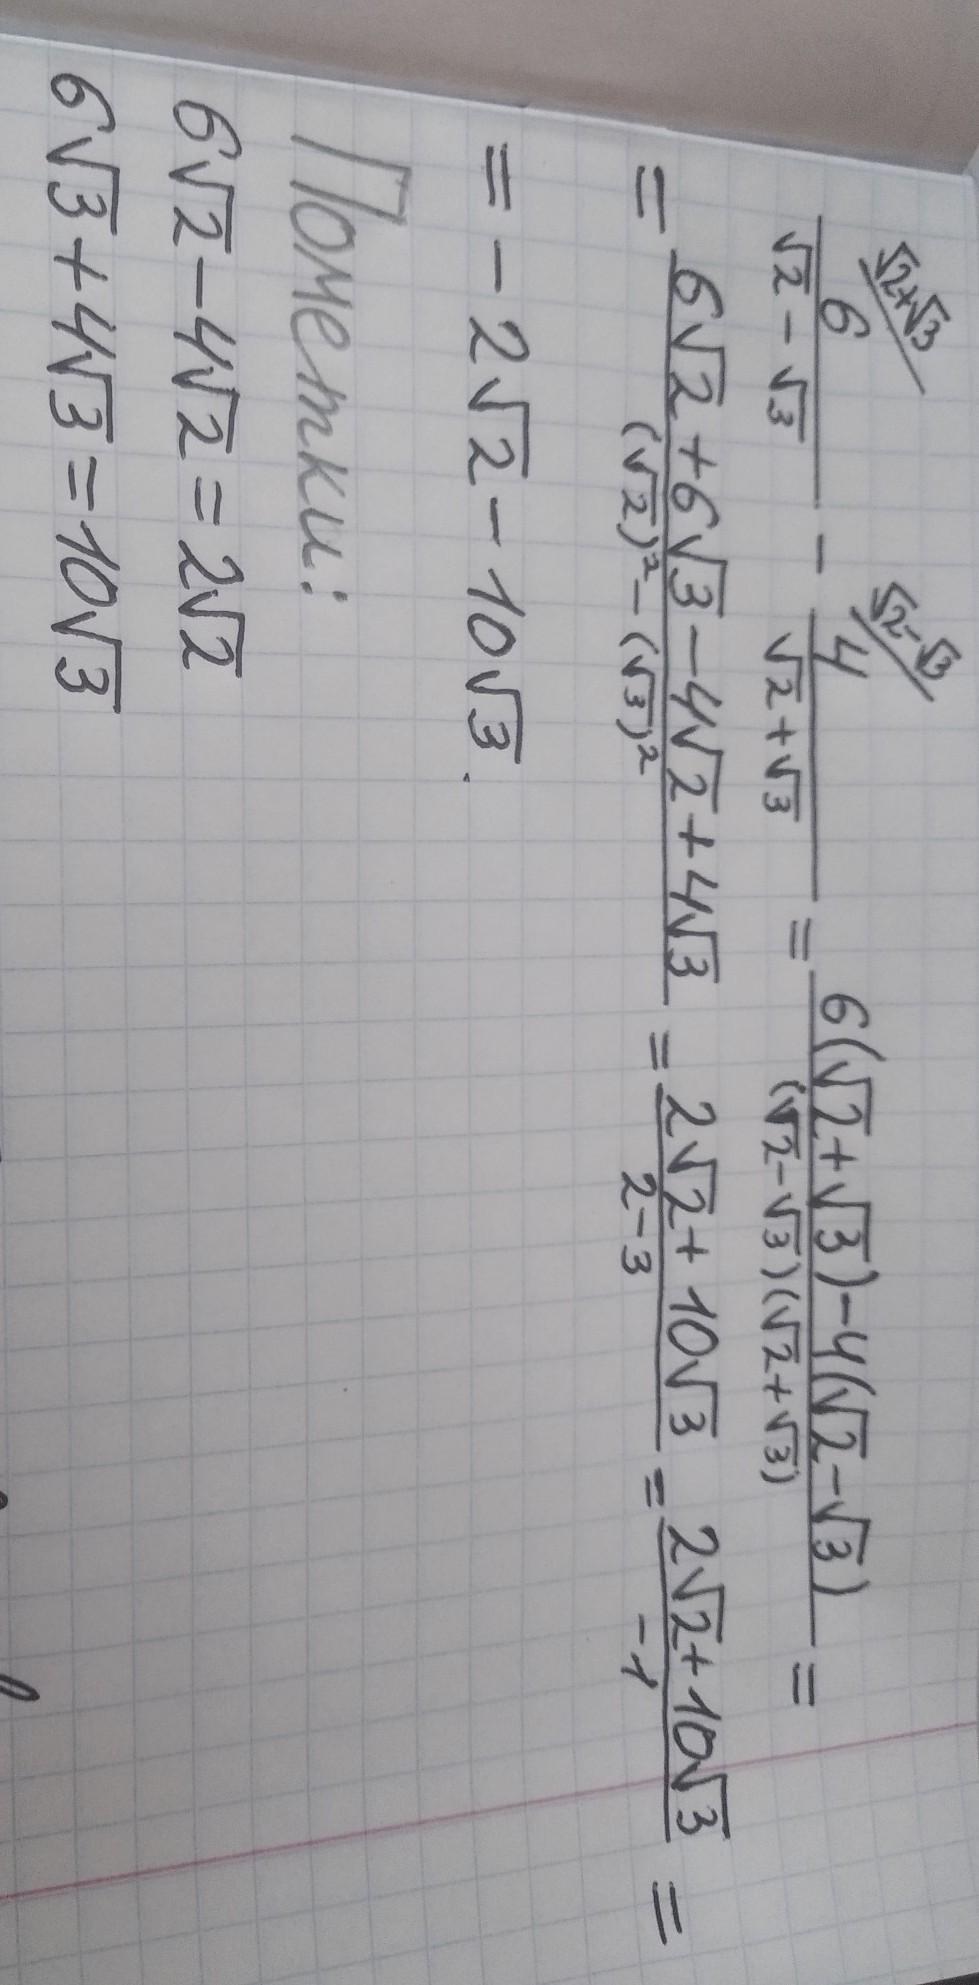 √2+√3 √2-√3
6/(√2-√3) - 4/(√2+√3) = (6(√2+√3)-4(√2-√3))/((√2-√3)(√2+√3)) =
= (6√2+6√3-4√2+4√3)/((√2)²-(√3)²) = (2√2+10√3)/(2-3) = (2√2+10√3)/(-1) =
= -2√2-10√3.
Пометки:
6√2-4√2=2√2
6√3+4√3=10√3